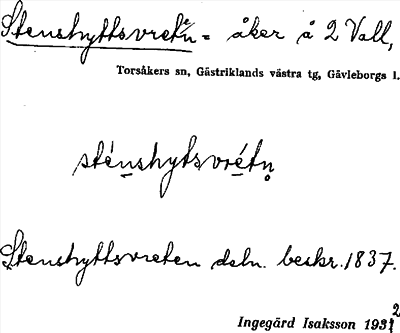 Stenshyttsvretn̥ = åker å 2 Vall,
Torsåkers sn, Gästriklands västra tg, Gävleborgs l.
sténshytsvrétn̥
Stenshyttsvreten deln. beskr. 1837.
Ingegärd Isaksson 1932